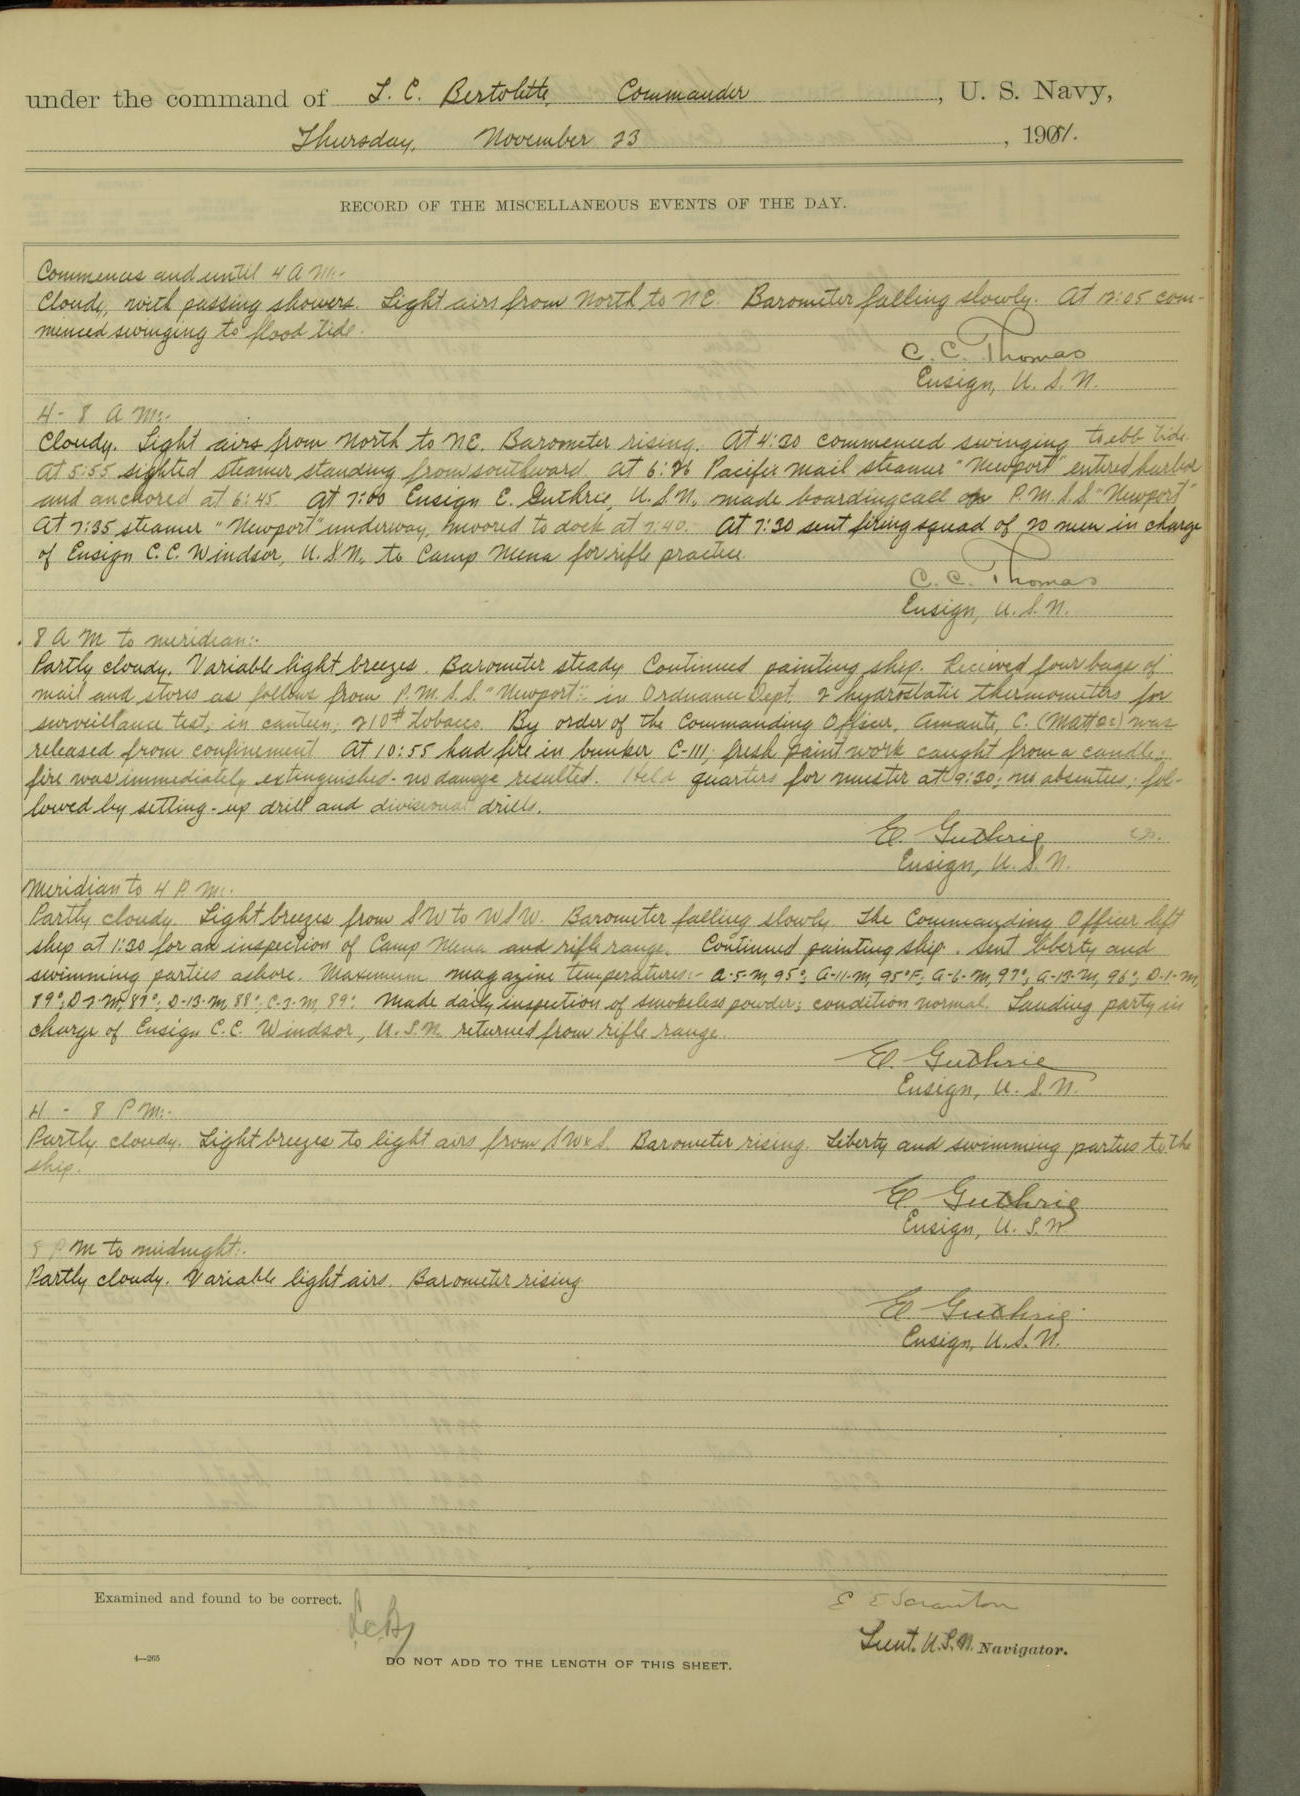 under the command of L. C. Bertolette, Commander, U. S. Navy,
Thursday, November 23, 1911.
RECORD OF THE MISCELLANEOUS EVENTS OF THE DAY.
Commences and until 4 A M:-
Cloudy, with passing showers. Light airs from North to NE. Barometer falling slowly. At 12:05 com-
menced swinging to flood tide.
C. C. Thomas
Ensign, U. S. N.
4 - 8 A M:-
Cloudy. Light airs from North to NE. Barometer rising. At 4:30 commenced swinging to ebb tide.
At 5:55 sighted steamer standing from southward. At 6:26 Pacific Mail steamer "Newport" entered harbor
and anchored at 6:45. At 7:00 Ensign E. Guthrie, U.S.N., made boarding call on P.M.S.S. "Newport"
At 7:35 steamer "Newport" underway, moored to dock at 7:40. At 7:30 sent firing squad of 20 men in charge
of Ensign C. C. Windsor, U. S. N., to Camp Mena for rifle practice.
C. C. Thomas
Ensign, U. S. N.
8 A M to meridian:-
Partly cloudy. Variable light breezes. Barometer steady. Continued painting ship. Recieved four bags of
mail and stores as follows from P.M.S.S. "Newport":- in Ordnance Dept. 2 hydrostatic thermometers for
surveillance test; in canteen; 210# tobacco. By order of the Commanding Officer, Amante, C. (Matt ) was
released from confinement. At 10:55 had fire in bunker, C-111; fresh paint work caught from a candle;
fire was immediately extinguished - no damage resulted. Held quarters for muster at 9:30; no absentees; fol-
lowed by setting-up drill and divisional drills.
E. Guthrie
Ensign, U. S. N.
Meridian to 4 P M:-
Partly cloudy. Light breezes from SW to WSW. Barometer falling slowly. The Commanding Officer left
ship at 1:30 for an inspection of Camp Mena and rifle range. Continued painting ship. Sent liberty and
swimming parties ashore. Maximum magazine temperatures:- A-5-M, 95°; A-11-M, 95°F; A-6-M, 97°; A-13-M, 96°; D-1-M,
89°; D-2-M, 87°; D-13-M, 88°; C-3-M, 89°. Made daily inspection of smokeless powder; condition normal. Landing party in
charge of Ensign C. C. Windsor, U. S. N. returned from rifle range.
E. Guthrie
Ensign, U. S. N.
4 - 8 P M:-
Partly cloudy. Light breezes to light airs from SWxS. Barometer rising. Liberty and swimming parties to the
ship.
E. Guthrie
Ensign, U. S. N.
8 P M to midnight:-
Partly cloudy. Variable light airs. Barometer rising
E. Guthrie
Ensign, U. S. N.
Examined and found to be correct.
L.C.B.
E E Scranton
Lieut. U. S. N. Navigator.
4—265
DO NOT ADD TO THE LENGTH OF THIS SHEET.